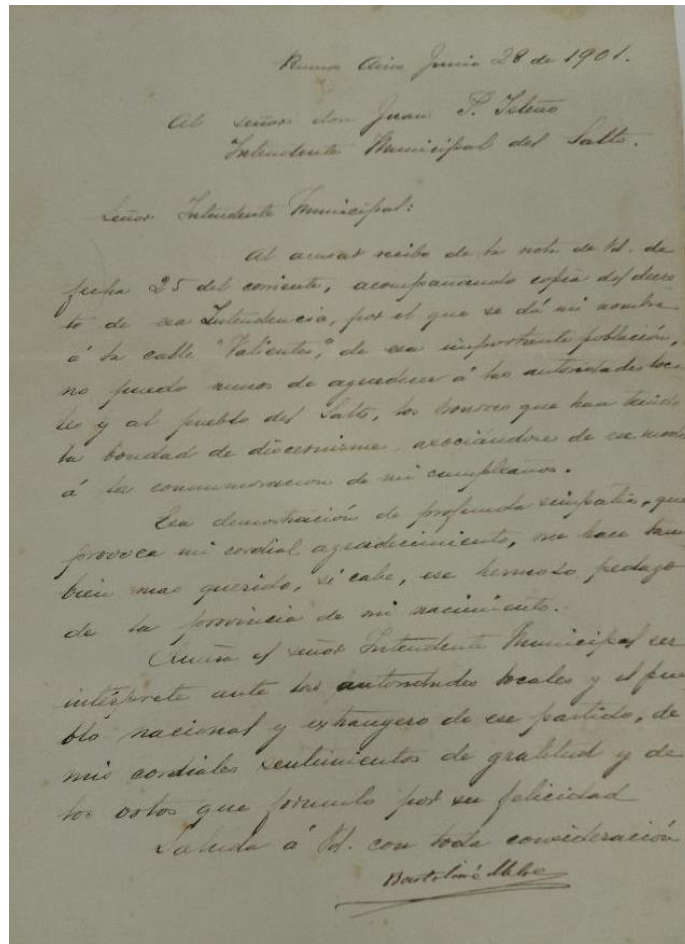 Buenos Aires Junio 28 de 1901.
Al señor don Juan P. Isleño
Intendente Municipal del Salto.
Señor Intendente Municipal:
Al acusar recibo de la nota de Vd. de
fecha 25 del corriente, acompañando copia del decre
to de esa Intendencia, por el que se dá mi nombre
á la calle "Valientes," de esa importante población,
no puedo menos de agradecer á las autoridades loca
les y al pueblo del Salto, los honores que han tenido
la bondad de discernirme, asociándose de ese modo
á la conmemoracion de mi cumpleaños.
Esa demostración de profunda simpatia, que
provoca mi cordial agradecimiento, me hace tam
bien mas querido, si cabe, ese hermoso pedazo
de la provincia de mi nacimiento.
el señor Intendente Municipal ser
intérprete ante las autoridades locales y el pue
blo nacional y extrangero de ese partido, de
mis cordiales sentimientos de gratitud y de
los votos que formulo por su felicidad
Saluda á Vd. con toda consideración
Bartolomé Mitre